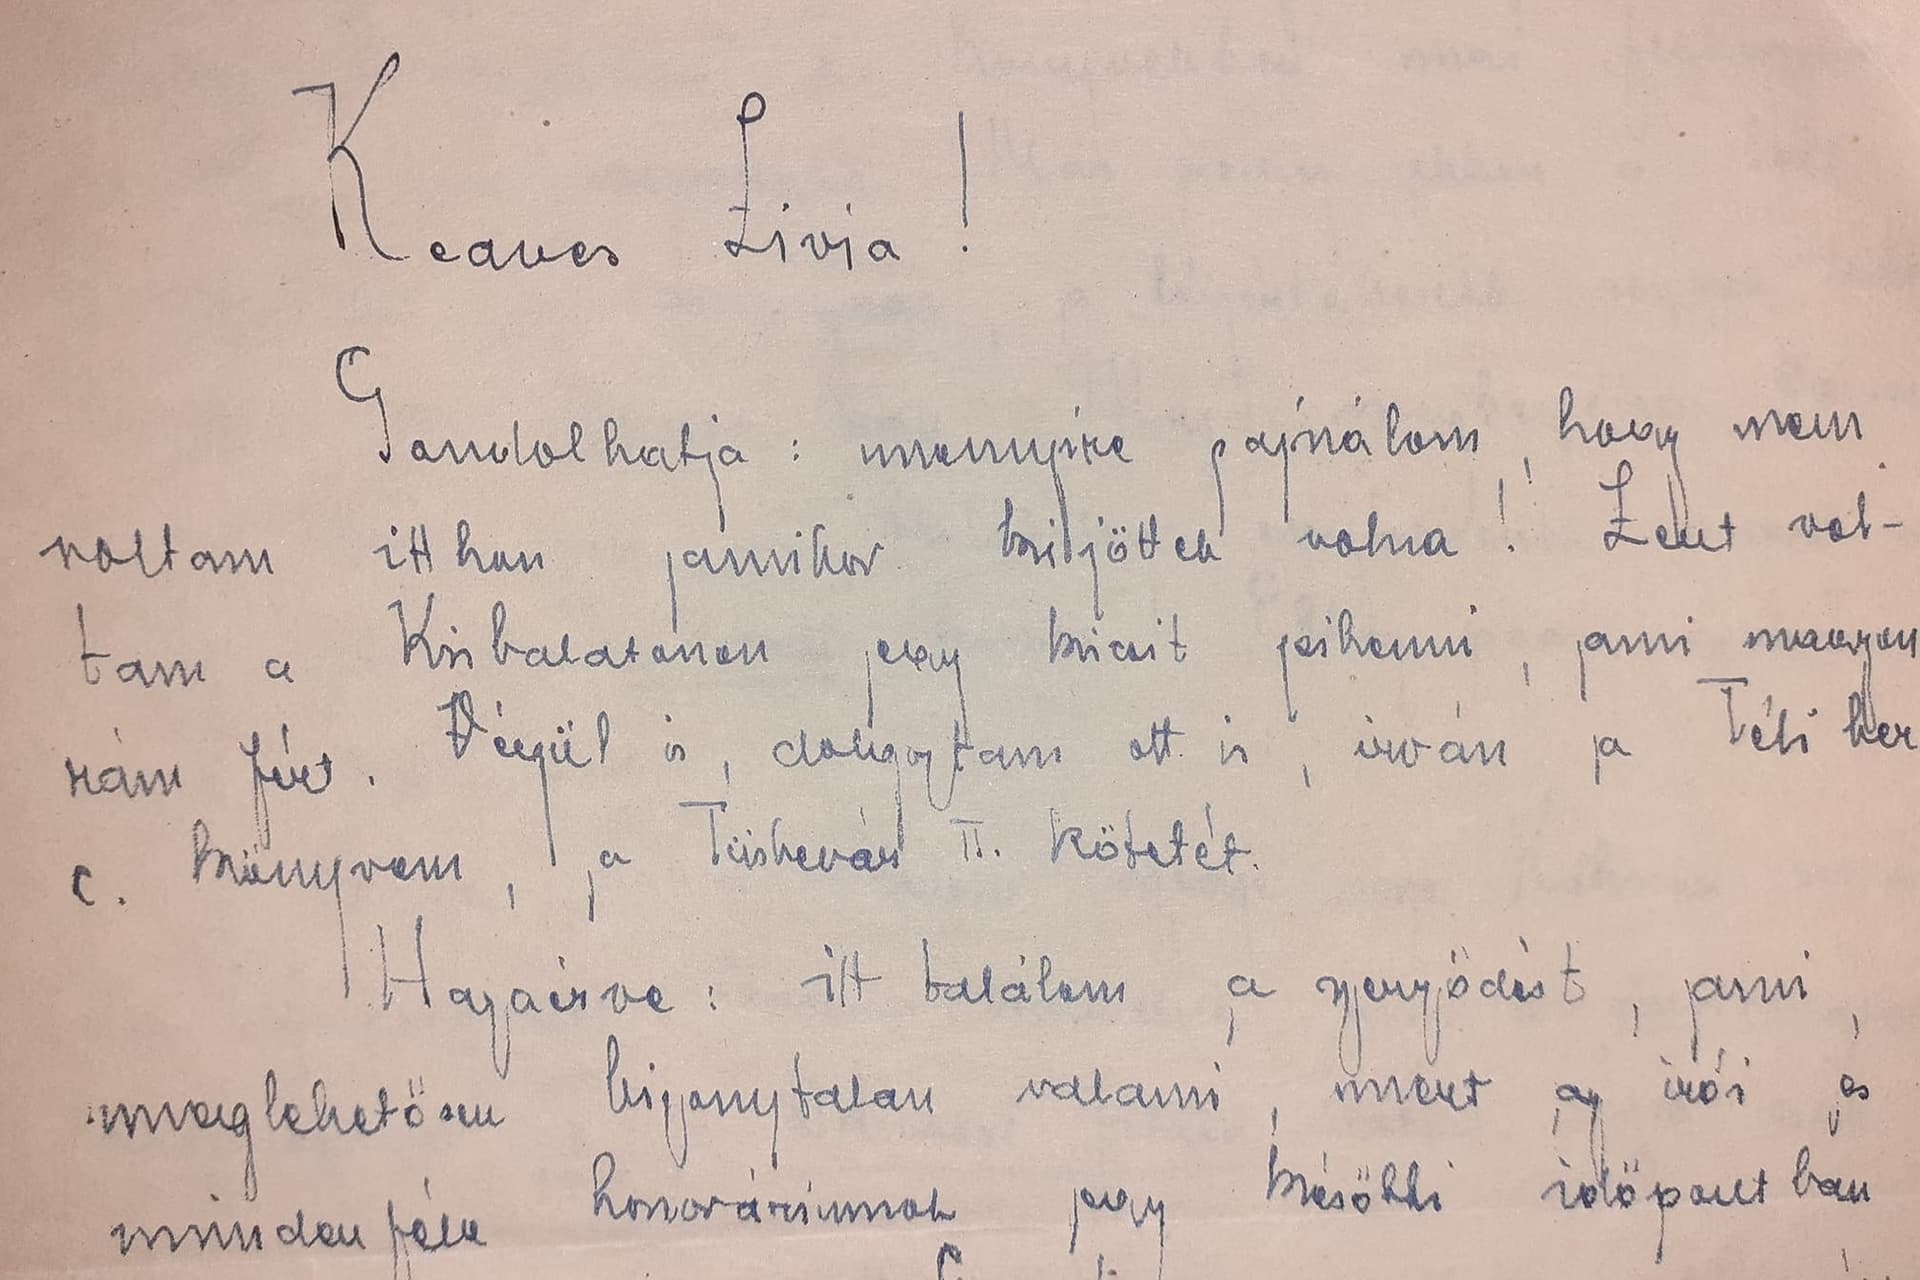 Kedves Lívia!
Gondolhatja: mennyire sajnálom, hogy nem
voltam itthon amikor kijöttek volna! Lent vol-
tam a Kisbalatonon egy kicsit pihenni, ami nagyon
rám fért. Végül is, dolgoztam ott is, írván a Téli ber
c. könyvem, a Tüskevár II. kötetét.
Hazaérve: itt találom a szerződést, ami,
meglehetősen bizonytalan valami, mert az írói és
mindenféle honoráriumok egy későbbi időpontban